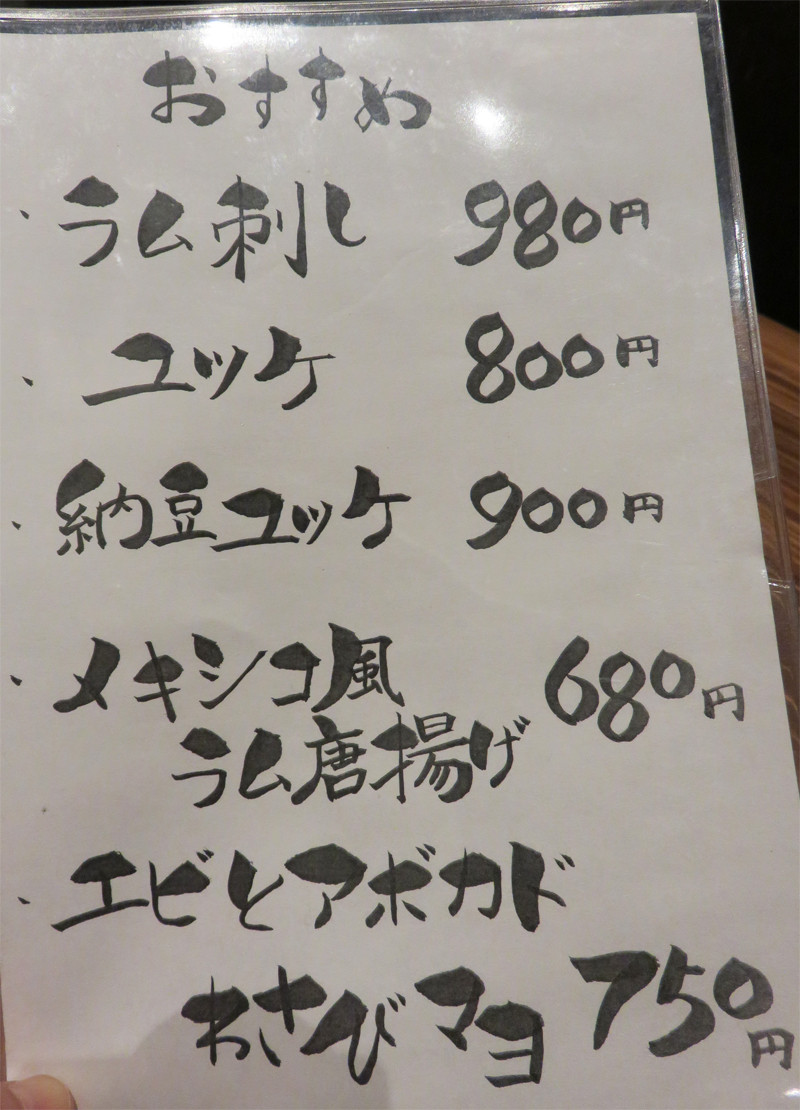 おすすめ
・ラム刺し 980円
・ユッケ 800円
・納豆ユッケ 900円
・メキシコ風 680円
ラム唐揚げ
・エビとアボカド
わさびマヨ 750円